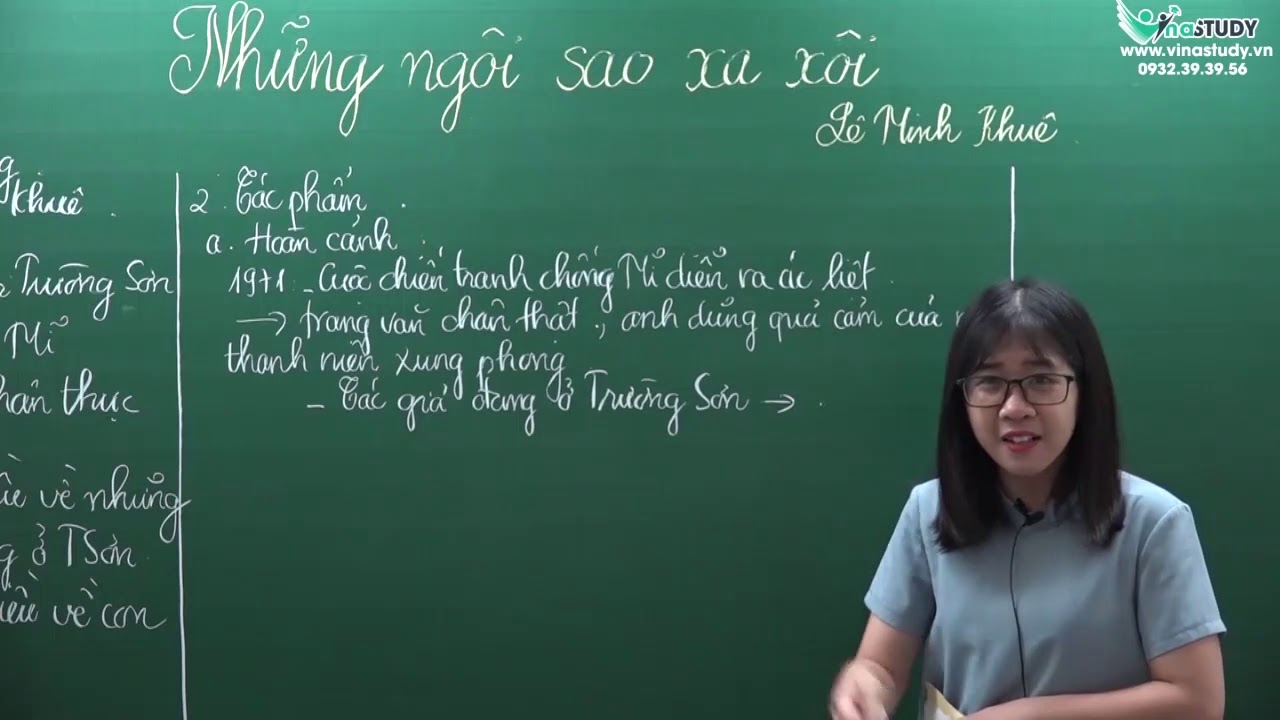 Những ngôi sao xa xôi
Lê Minh Khuê
VinaSTUDY
www.vinastudy.vn
0932.39.39.56
Khuê
Trường Sơn
Mĩ
thực
về những
ở TSơn
về con
2. Tác phẩm
a. Hoàn cảnh
1971 - Cuộc chiến tranh chống Mĩ diễn ra ác liệt
→ trang văn chân thật, anh dũng quả cảm của
thanh niên xung phong
- Tác giả đang ở Trường Sơn →